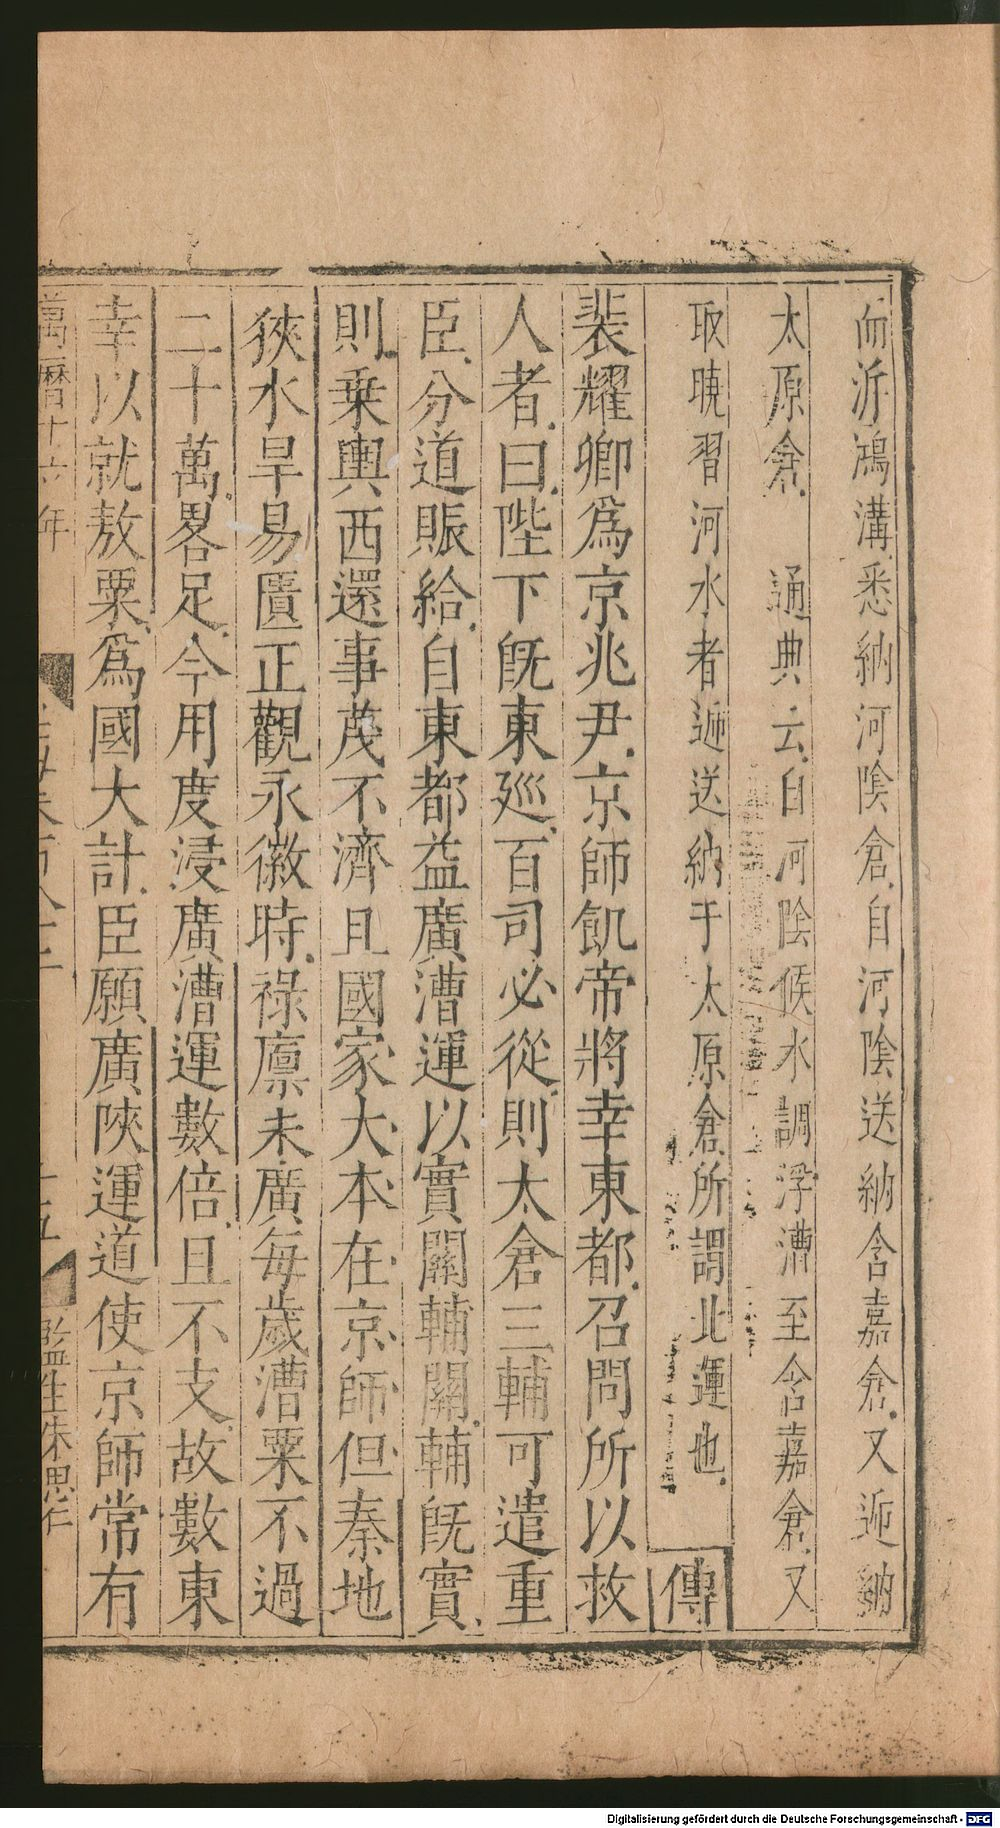 而泝鴻溝悉納河陰倉自河陰送納含嘉倉又逓納
太原倉　通典云自河陰候水調浮漕至含嘉倉又
取曉習河水者逓送納于太原倉所謂北運也　傳
裴耀卿爲京兆尹京師飢帝將幸東都召問所以救
人者曰陛下旣東廵百司必從則太倉三輔可遣重
臣分道賑給自東都益廣漕運以實關輔關輔旣實
則乗輿西還事茂不濟且國家大本在京師但秦地
狹水旱易匱正觀永徽時祿廪未廣每歲漕粟不過
二十萬畧足今用度浸廣漕運數倍且不支故數東
幸以就敖粟爲國大計臣願廣陝運道使京師常有
萬曆十六年　百八十二　十五　監生朱思
Digitalisierung gefördert durch die Deutsche Forschungsgemeinschaft - DFG